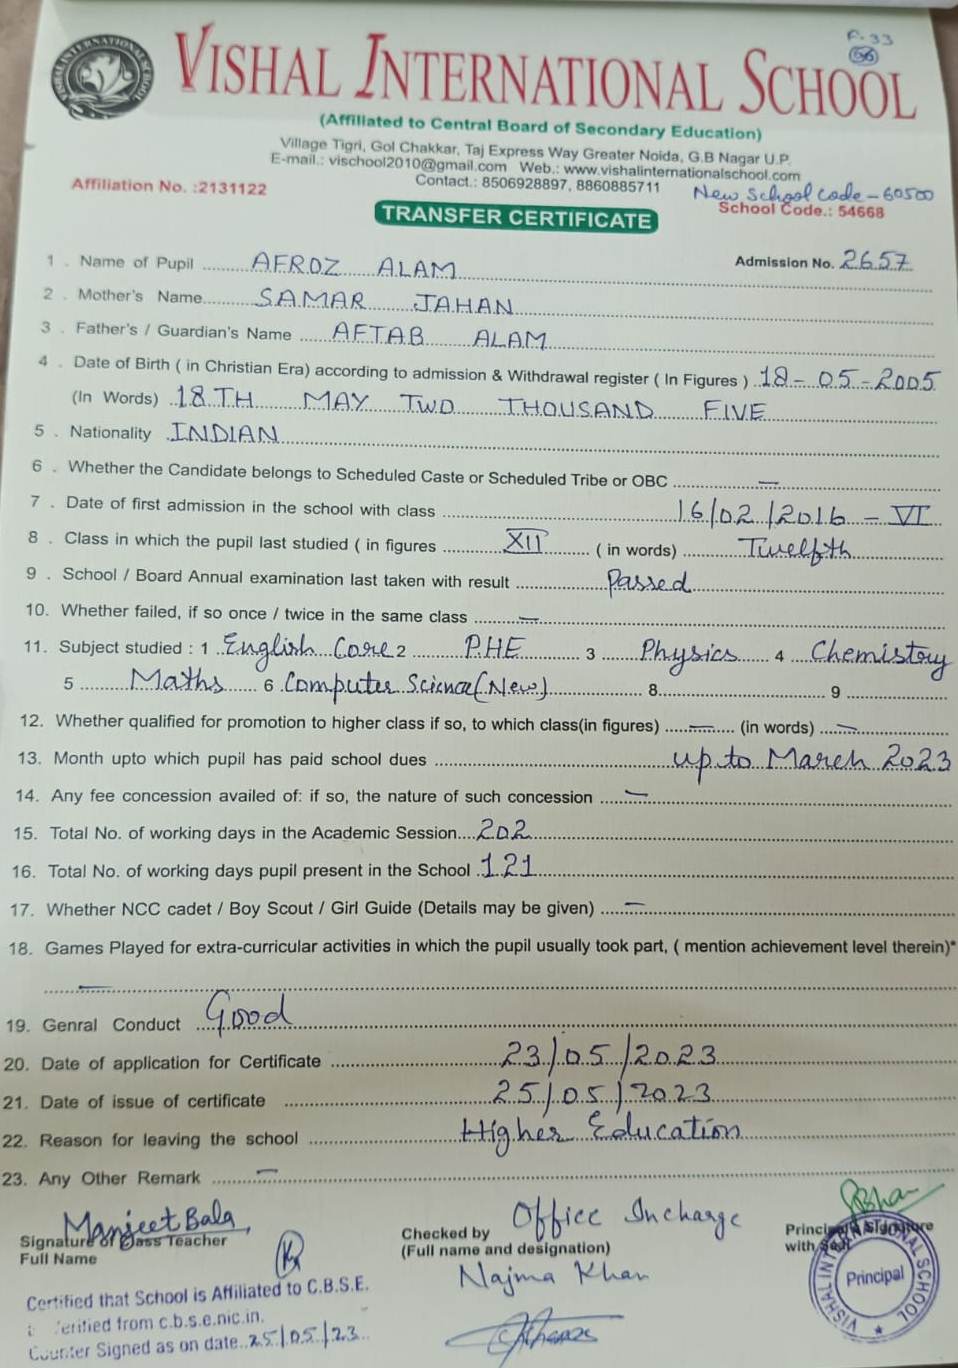 F.33
66
VISHAL INTERNATIONAL SCHOOL
(Affiliated to Central Board of Secondary Education)
Village Tigri, Gol Chakkar, Taj Express Way Greater Noida, G.B Nagar U.P.
E-mail.: vischool2010@gmail.com Web.: www.vishalinternationalschool.com
Contact.: 8506928897, 8860885711
New School Code - 60500
Affiliation No. :2131122
School Code.: 54668
TRANSFER CERTIFICATE
1 . Name of Pupil AFROZ ALAM Admission No. 2657
2 . Mother's Name SAMAR JAHAN
3 . Father's / Guardian's Name AFTAB ALAM
4 . Date of Birth ( in Christian Era) according to admission & Withdrawal register ( In Figures ) 18 - 05 - 2005
(In Words) 18TH MAY TWO THOUSAND FIVE
5 . Nationality INDIAN
6 . Whether the Candidate belongs to Scheduled Caste or Scheduled Tribe or OBC —
7 . Date of first admission in the school with class 16/02/2016 - VI
8 . Class in which the pupil last studied ( in figures XII ( in words) Twelfth
9 . School / Board Annual examination last taken with result Passed
10. Whether failed, if so once / twice in the same class —
11. Subject studied : 1 English Core 2 P.HE 3 Physics 4 Chemistry
5 Maths 6 Computer Science (New) 8 9
12. Whether qualified for promotion to higher class if so, to which class(in figures) — (in words) —
13. Month upto which pupil has paid school dues up to March 2023
14. Any fee concession availed of: if so, the nature of such concession —
15. Total No. of working days in the Academic Session 202
16. Total No. of working days pupil present in the School 121
17. Whether NCC cadet / Boy Scout / Girl Guide (Details may be given) —
18. Games Played for extra-curricular activities in which the pupil usually took part, ( mention achievement level therein)*
—
19. Genral Conduct Good
20. Date of application for Certificate 23/05/2023
21. Date of issue of certificate 25/05/2023
22. Reason for leaving the school Higher Education
23. Any Other Remark —
Manjeet Bala
Signature of Class Teacher
Full Name
Checked by Office Incharge
(Full name and designation)
Najma Khan
Principal's Signature
with Seal
VISHAL INTERNATIONAL SCHOOL
Principal
Certified that School is Affiliated to C.B.S.E.
verified from c.b.s.e.nic.in.
Counter Signed as on date..25/05/23